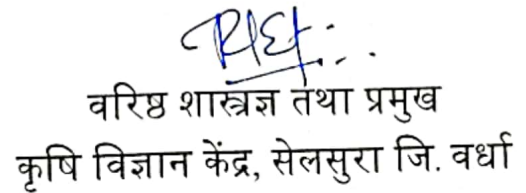 वरिष्ठ शास्त्रज्ञ तथा प्रमुख
कृषि विज्ञान केंद्र, सेलसुरा जि. वर्धा